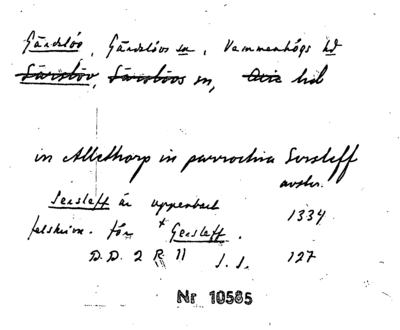 Gärdslöv, Gärdslövs sn, Vemmenhögs hd
Särslöv, Särslövs sn, Oxie hd
in Allethorp in parrochia Sersleff
avskr.
Sersleff är uppenbart 1334
felskrivn. för *Gersleff.
D.D. 2 R 11 s. s. 127
Nr 10585